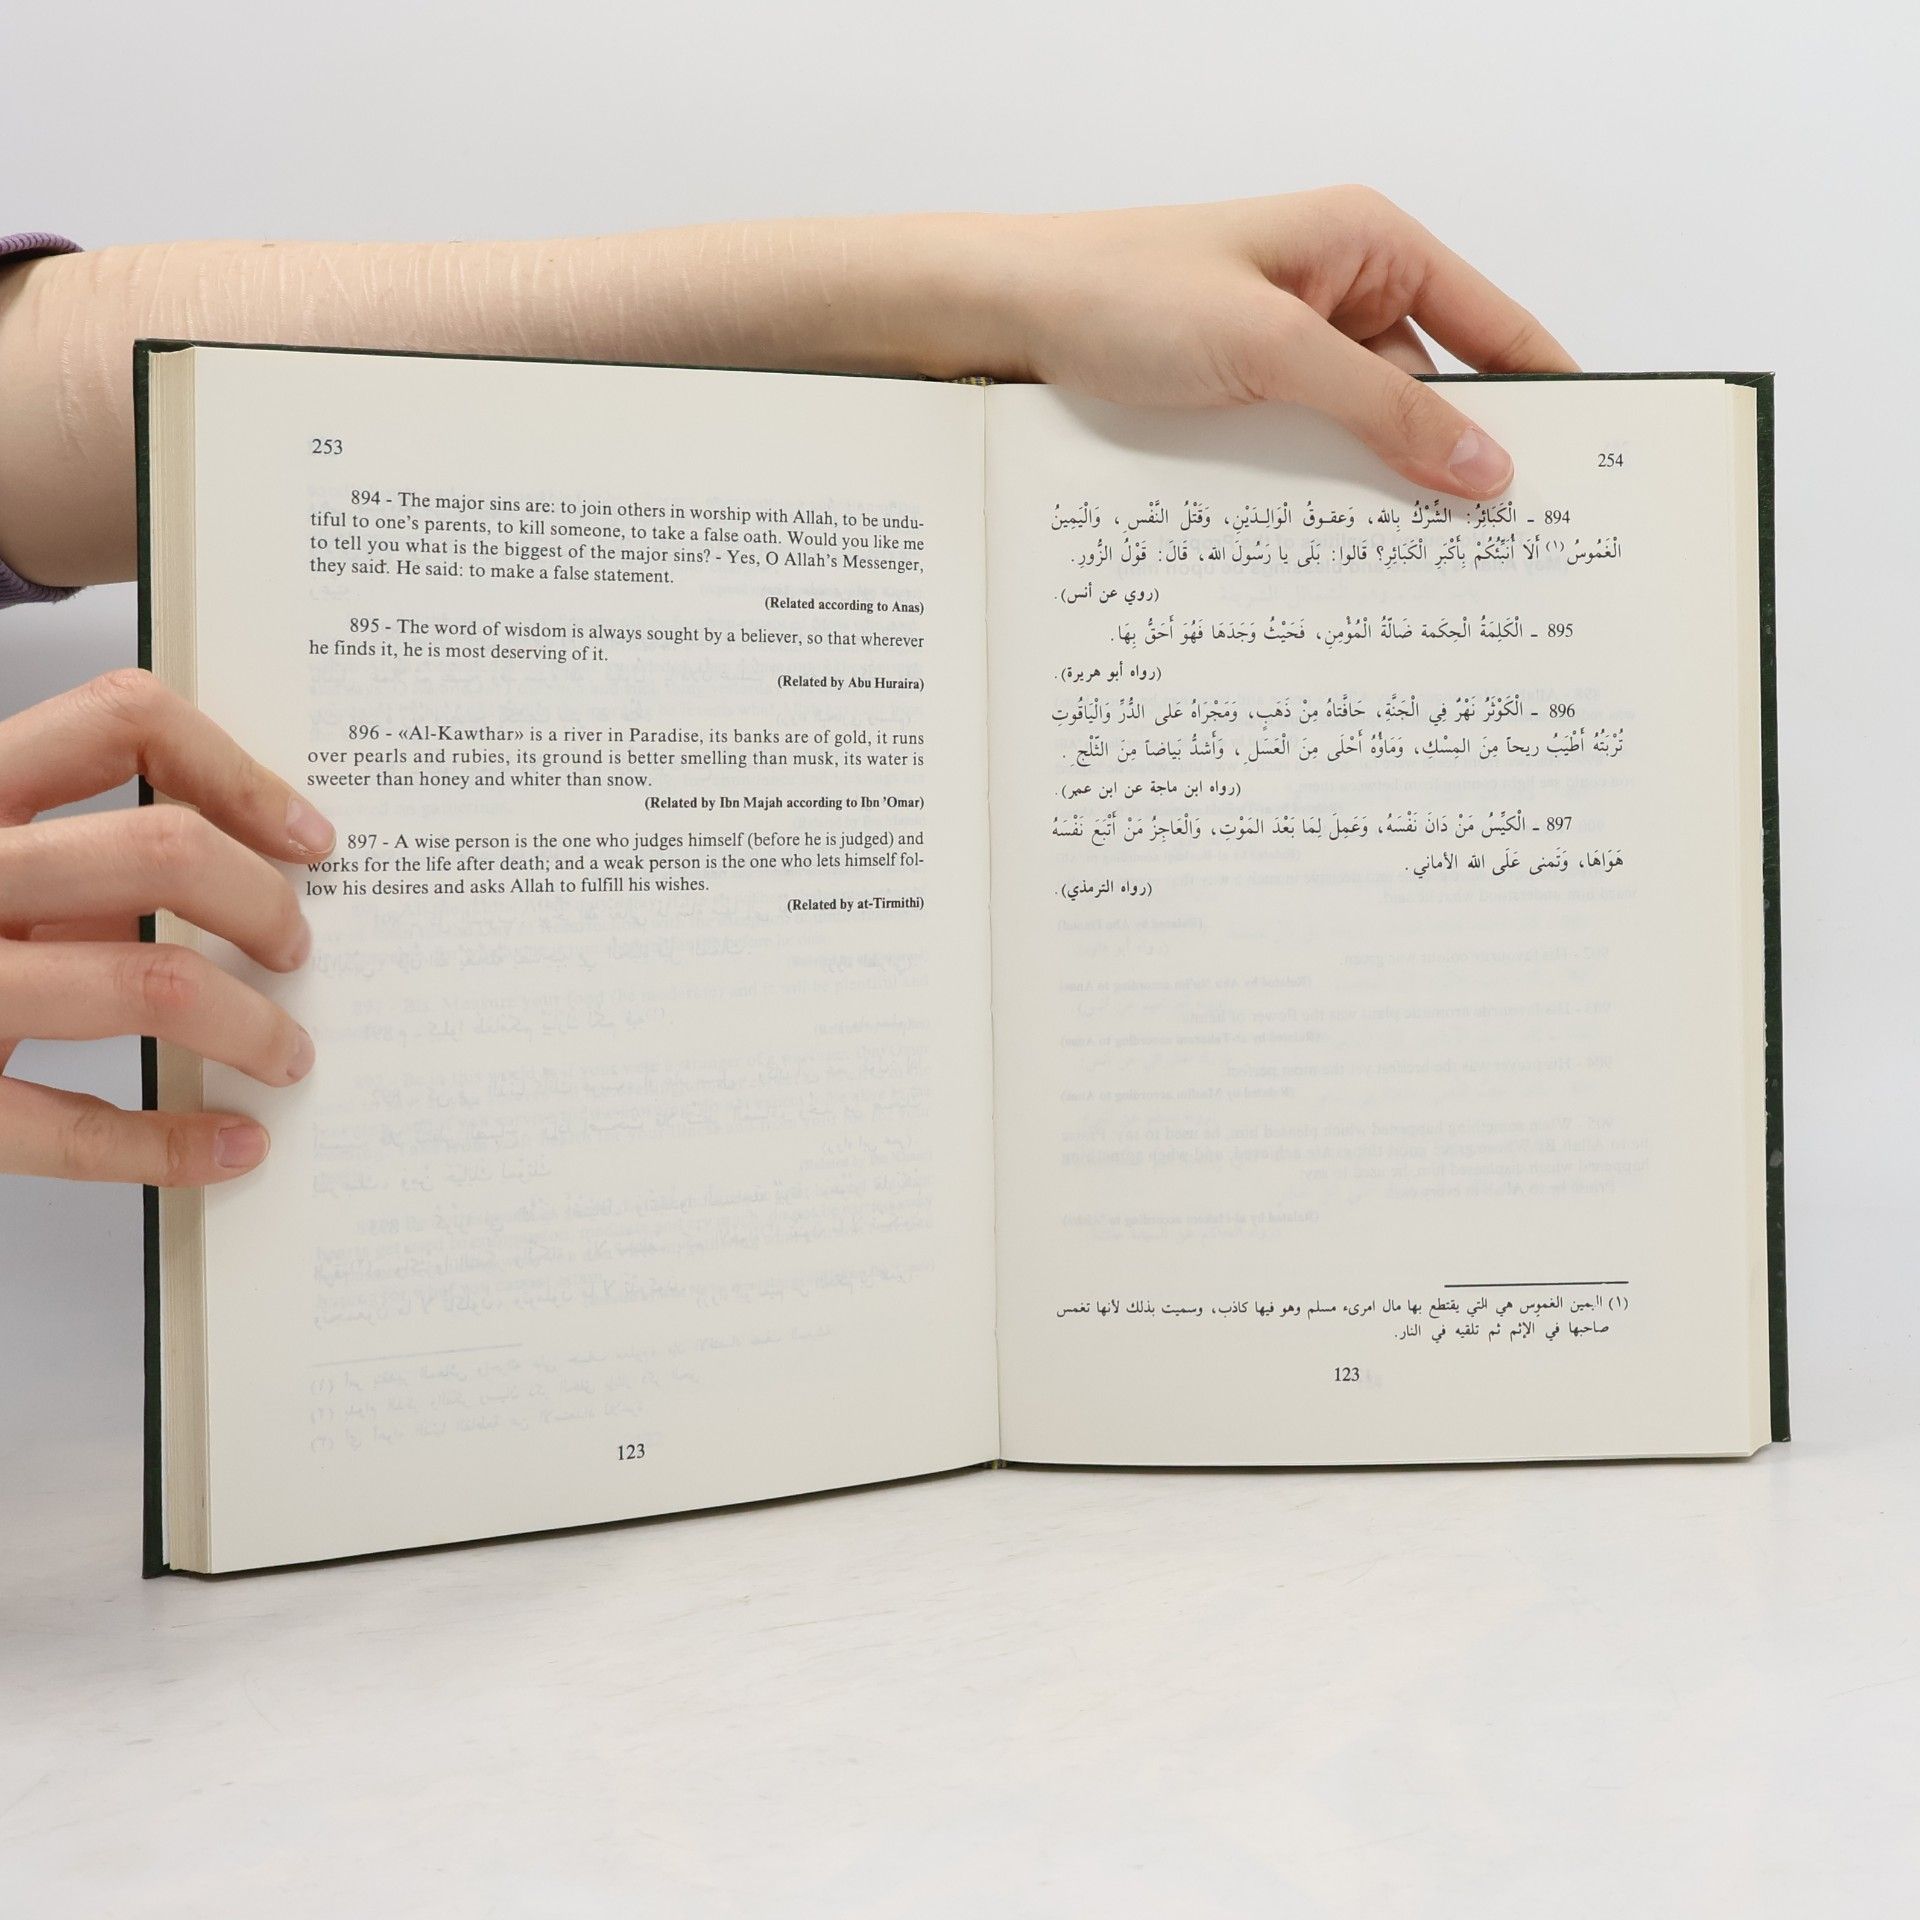 253
894 - The major sins are: to join others in worship with Allah, to be undu-
tiful to one's parents, to kill someone, to take a false oath. Would you like me
to tell you what is the biggest of the major sins? - Yes, O Allah's Messenger,
they said. He said: to make a false statement.
(Related according to Anas)
895 - The word of wisdom is always sought by a believer, so that wherever
he finds it, he is most deserving of it.
(Related by Abu Huraira)
896 - «Al-Kawthar» is a river in Paradise, its banks are of gold, it runs
over pearls and rubies, its ground is better smelling than musk, its water is
sweeter than honey and whiter than snow.
(Related by Ibn Majah according to Ibn 'Omar)
897 - A wise person is the one who judges himself (before he is judged) and
works for the life after death; and a weak person is the one who lets himself fol-
low his desires and asks Allah to fulfill his wishes.
(Related by at-Tirmithi)
123
254
894 ـ الْكَبَائِرُ: الشِّرْكُ بِالله، وَعقـوقُ الْوَالِـدَيْنِ، وَقَتْلُ النَّفْسِ، وَالْيَمِينُ
الْغَمُوسُ(١) أَلَا أُنَبِّئُكُمْ بِأَكْبَرِ الْكَبَائِرِ؟ قالوا: بَلَى يا رَسُولَ الله، قَالَ: قَوْلُ الزُّورِ.
(روي عن أنس).
895 ـ الْكَلِمَةُ الْحِكمة ضَالَّةُ الْمُؤْمِنِ، فَحَيْثُ وَجَدَهَا فَهُوَ أَحَقُّ بِهَا.
(رواه أبو هريرة).
896 ـ الْكَوْثَرُ نَهْرٌ فِي الْجَنَّةِ، حَافَّتاهُ مِنْ ذَهَبٍ، وَمَجْرَاهُ عَلى الدُّرِّ وَالْيَاقُوتِ
تُرْبَتُهُ أَطْيَبُ ريحاً مِنَ المِسْكِ، وَمَاؤُهُ أَحْلَى مِنَ الْعَسَلِ، وَأَشدُّ بَياضاً مِنَ الثّلْجِ.
(رواه ابن ماجة عن ابن عمر).
897 ـ الْكَيِّسُ مَنْ دَانَ نَفْسَهُ، وَعَمِلَ لِمَا بَعْدَ المَوْتِ، وَالْعَاجِزُ مَنْ أَتْبَعَ نَفْسَهُ
هَوَاهَا، وَتَمنى عَلَى الله الأماني.
(رواه الترمذي).
(١) اليمين الغموس هي التي يقتطع بها مال امرىء مسلم وهو فيها كاذب، وسميت بذلك لأنها تغمس
صاحبها في الإثم ثم تلقيه في النار.
123